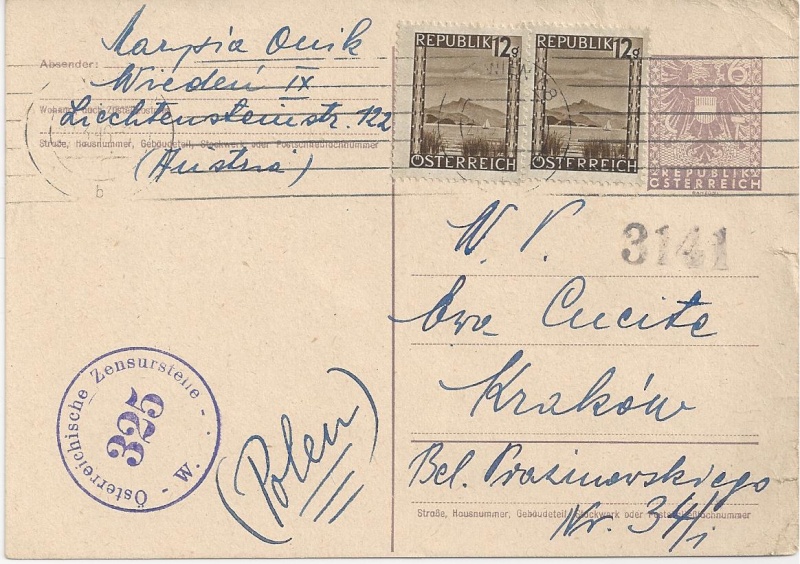 Absender:
Marysia Onik
Wiedeń IX
Liechtensteinstr. 122
Straße, Hausnummer, Gebäudeteil, Stockwerk oder Postschließfachnummer
(Austria)
b
REPUBLIK 12g
ÖSTERREICH
REPUBLIK 12g
ÖSTERREICH
REPUBLIK
ÖSTERREICH
3141
W. P.
Ewa
Kraków
Bel. Prażmowskiego
Nr. 34/i
Straße, Hausnummer, Gebäudeteil, Stockwerk oder Postschließfachnummer
(Polen)
Österreichische Zensurstelle - W. -
325